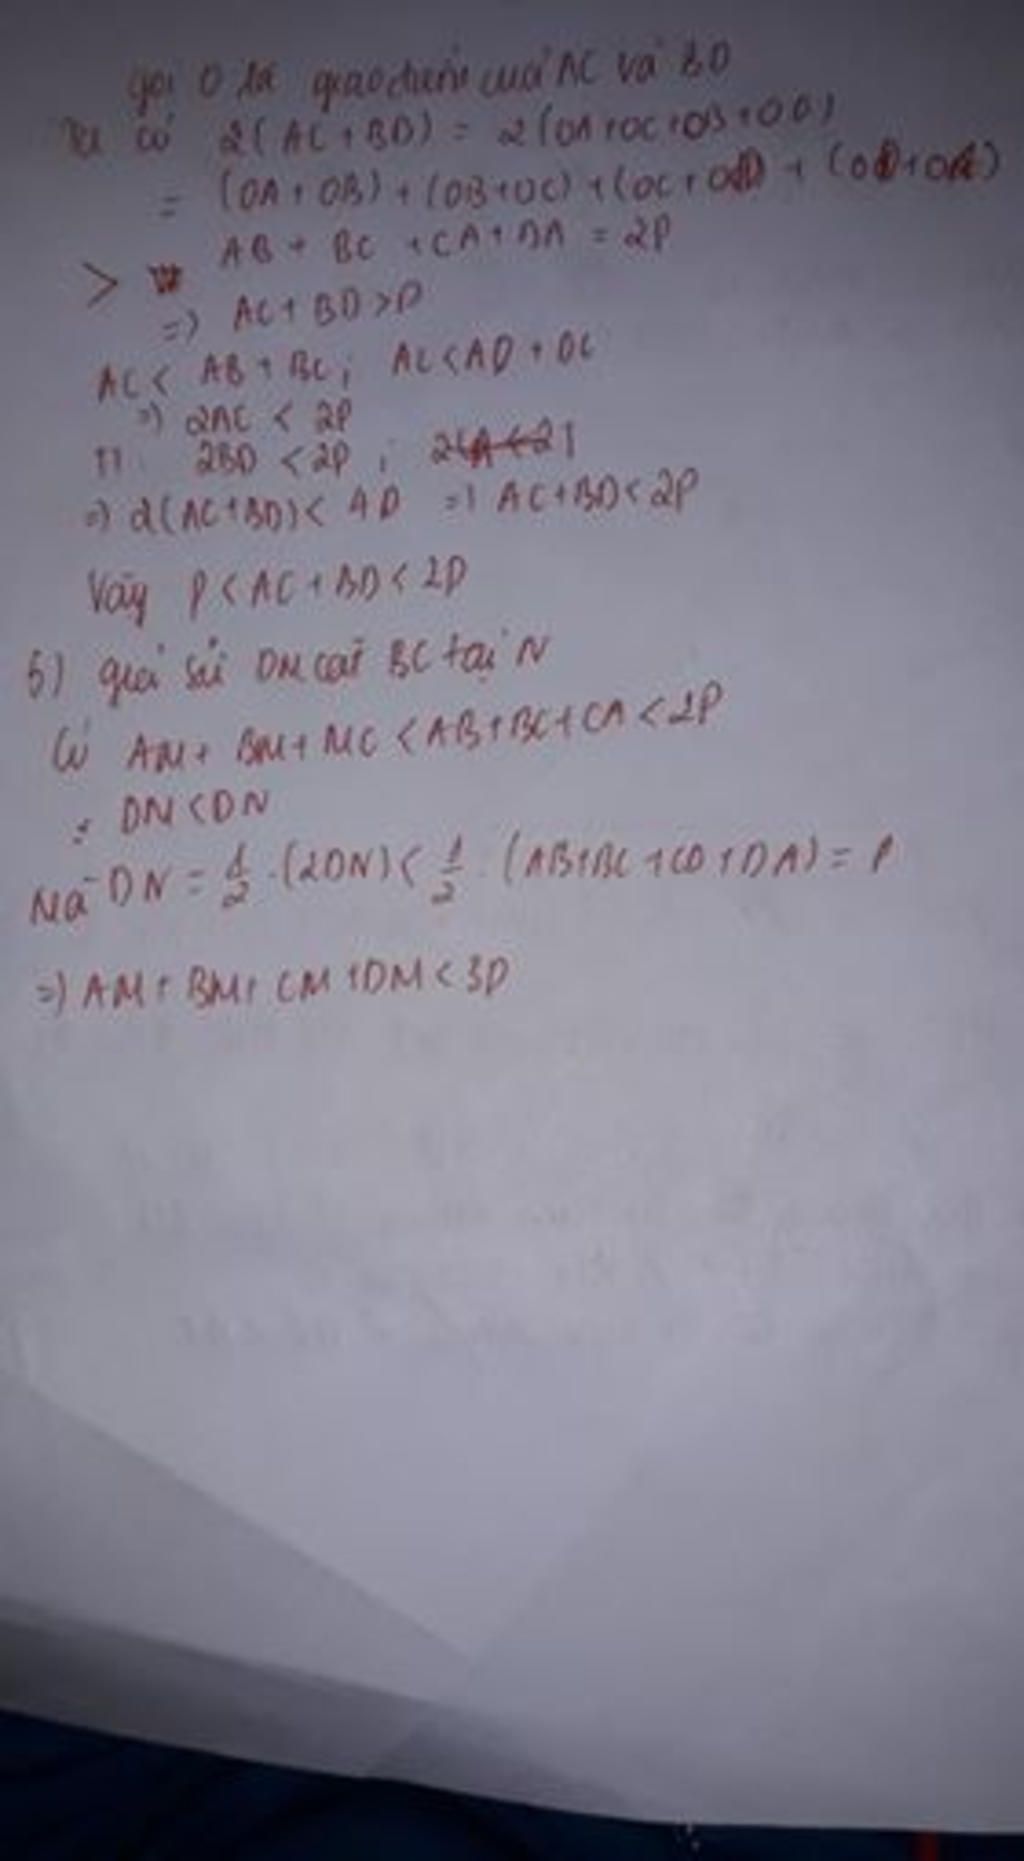 gọi O là giao điểm của AC và BD
Ta có 2(AC+BD) = 2(OA+OC+OB+OD)
= (OA+OB)+(OB+OC)+(OC+OD)+(OD+OA)
> AB + BC + CA + DA = 2P
=) AC+BD>P
AC< AB+BC; AC<AD+DC
=) 2AC < 2P
TT 2BD <2P ;
=) 2(AC+BD)< 4P =) AC+BD<2P
Vậy P<AC+BD<2P
b) giả sử DM cắt BC tại N
Có AM+ BM+ MC <AB+BC+CA<2P
: DN<DN
Mà DN = 1/2 .(2DN)< 1/2 . (AB+BC+CD+DA)= P
=) AM+ BM+ CM+DM<3P